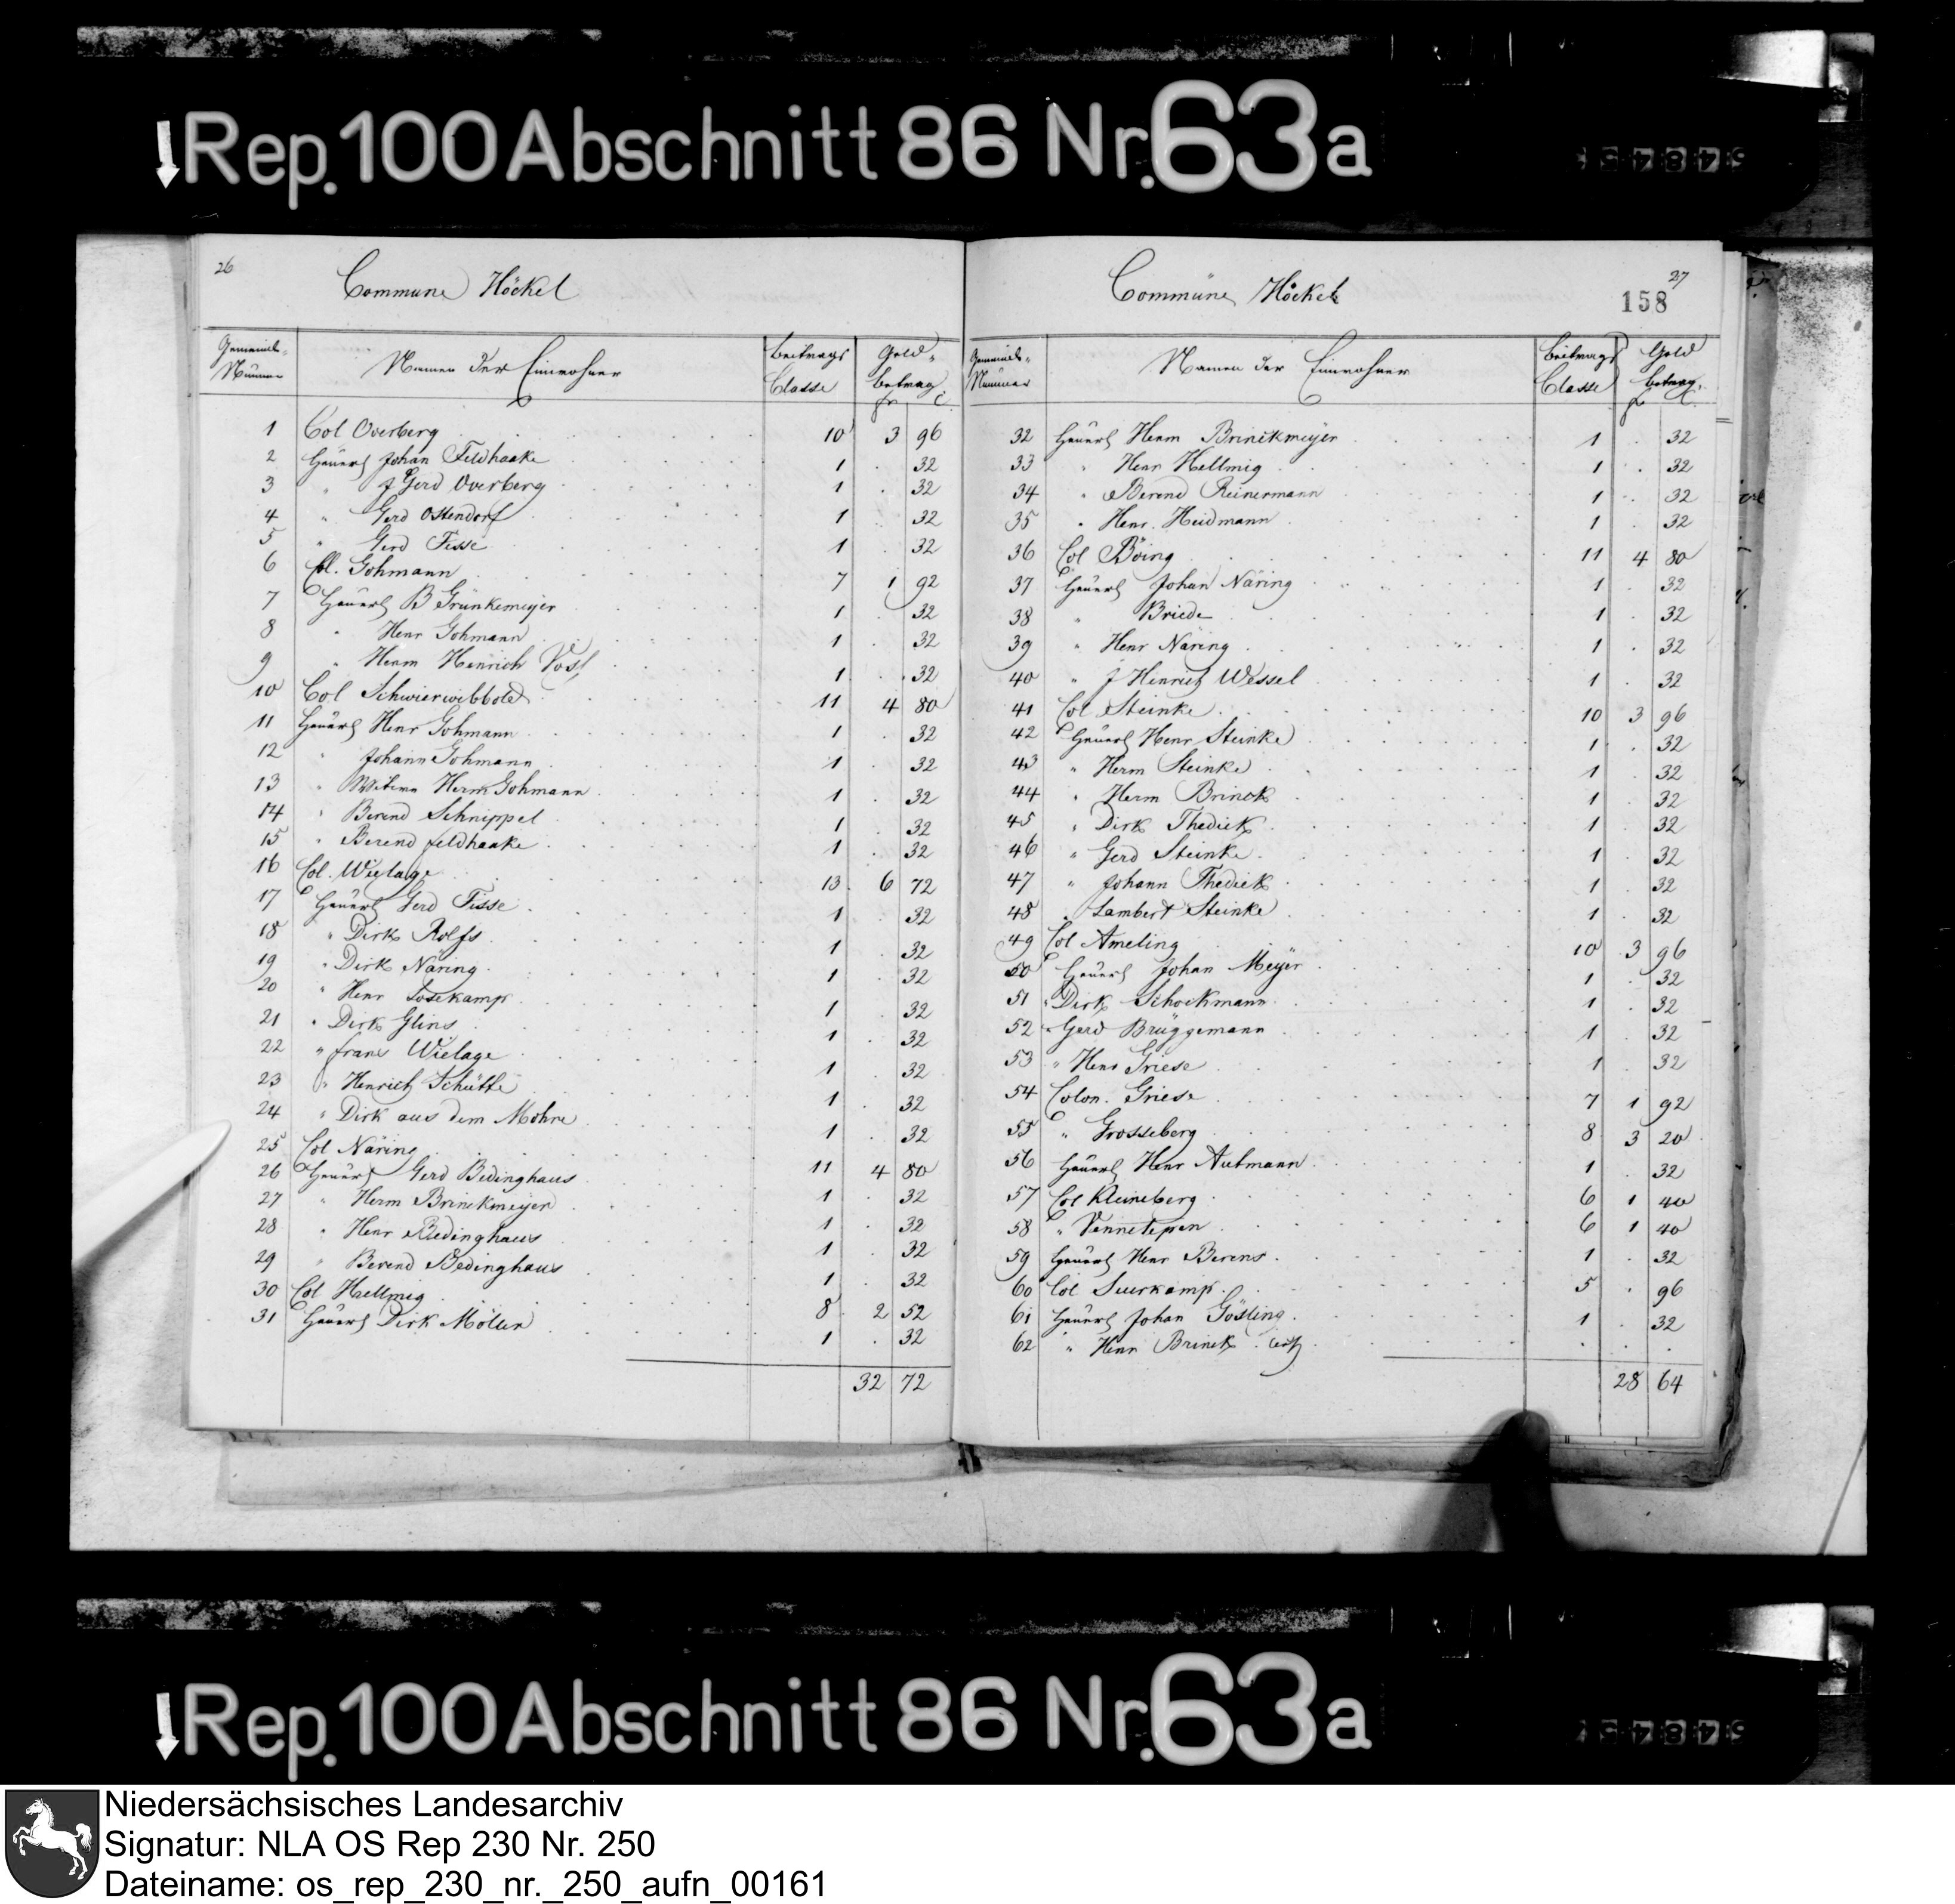 Rep. 100 Abschnitt 86 Nr. 63a
26
Commune Höckel
Gemeinde- Nummer Namen der Einwohner Beitrags Classe Geld- betrag fr c
1 Col Overberg 10 3 96
2 Heuerl Johan Feldhaake 1 . 32
3 " J Gerd Overberg 1 . 32
4 " Gerd Ostendorf 1 . 32
5 " Gerd Fisse 1 . 32
6 Col. Gohmann 7 1 92
7 Heuerl B Grünkemeyer 1 . 32
8 " Henr Gohmann 1 . 32
9 " Herm Henrich Vost 1 . 32
10 Col Schwierwibbold 11 4 80
11 Heuerl Henr Gohmann 1 . 32
12 " Johann Gohmann 1 . 32
13 " Witwe Herm Gohmann 1 . 32
14 " Berend Schnippel 1 . 32
15 " Berend Feldhaake 1 . 32
16 Col. Wielage 13 6 72
17 Heuerl Gerd Fisse 1 . 32
18 " Dirk Rolfs 1 . 32
19 " Dirk Näring 1 . 32
20 " Henr Losekamp 1 . 32
21 " Dirk Glins 1 . 32
22 " Franz Wielage 1 . 32
23 " Henrich Schütte 1 . 32
24 " Dirk aus dem Mohre 1 . 32
25 Col Näring 11 4 80
26 Heuerl Gerd Bedinghaus 1 . 32
27 " Herm Brinckmeyer 1 . 32
28 " Henr Bedinghaus 1 . 32
29 " Berend Bedinghaus 1 . 32
30 Col Hellmig 8 2 52
31 Heuerl Dirk Möller 1 . 32
32 72
27
158
Commune Höckel
Gemeinde- Nummer Namen der Einwohner Beitrags Classe Geld betrag fr c
32 Heuerl Herm Brinckmeyer 1 . 32
33 " Henr Hellmig 1 . 32
34 " Berend Reinermann 1 . 32
35 " Henr. Heidmann 1 . 32
36 Col Böing 11 4 80
37 Heuerl Johan Näring 1 . 32
38 " Briede 1 . 32
39 " Henr Näring 1 . 32
40 " J Hinrich Wessel 1 . 32
41 Col Steinke 10 3 96
42 Heuerl Henr Steinke 1 . 32
43 " Herm Steinke 1 . 32
44 " Herm Brinck 1 . 32
45 " Dirk Thedick 1 . 32
46 " Gerd Steinke 1 . 32
47 " Johann Thedick 1 . 32
48 " Lambert Steinke 1 . 32
49 Col Ameling 10 3 96
50 Heuerl Johan Meyer 1 . 32
51 " Dirk Schockmann 1 . 32
52 " Gerd Brüggemann 1 . 32
53 " Henr Griese 1 . 32
54 Colon. Griese 7 1 92
55 " Grosseberg 8 3 20
56 Heuerl Henr Autmann 1 . 32
57 Col Kleineberg 6 1 40
58 " Vennetepen 6 1 40
59 Heuerl Henr Berens 1 . 32
60 Col Suerkamp 5 . 96
61 Heuerl Johan Gösling 1 . 32
62 " Henr Brinck . . .
28 64
Rep. 100 Abschnitt 86 Nr. 63a
Niedersächsisches Landesarchiv
Signatur: NLA OS Rep 230 Nr. 250
Dateiname: os_rep_230_nr._250_aufn_00161